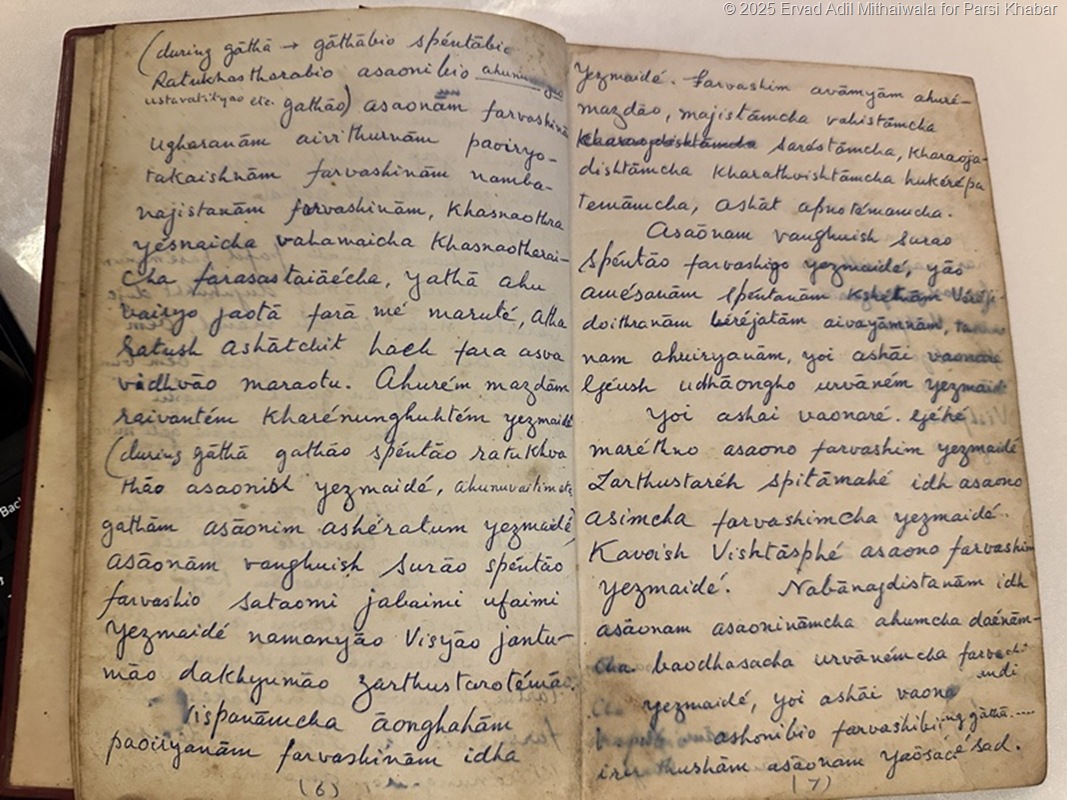 © 2025 Ervad Adil Mithaiwala for Parsi Khabar
(during gāthā → gāthābio spéntābio
Ratukhastharabio asaonibio
ustavatityao etc. gathāo) asaonām farvashinā
ugharanām airithurnām paoiryo-
takaishnām farvashinām namba-
najistanām farvashinām, khasnaothra
yésnaicha vahamaicha khasnaotharai-
cha farasastaiāécha, yathā ahu
vairyo jaotā farā mé maruté, atha
Ratush ashātchit hach fara asva
vidhvāo maraotu. Ahurém mazdām
raivantém kharénunghuhtém yezmaidé
(during gāthā gathāo spéntāo ratukhva
thāo asaonish yezmaidé, ahunuvaitim etc
gathām asāonim ashératum yezmaidé)
asāonām vanghuish surāo spéntāo
farvashio sataomi jabaimi ufaimi
yezmaidé namanyāo Visyāo jantu-
māo dakhyumāo zarthustarotémāo.
Vispanāmcha āonghahām
paoiryanām farvashinām idha
(6)
yezmaidé. Farvashim avāmyām ahuré-
mazdāo, majistāmcha vahistāmcha
saréstāmcha, kharaoja-
dishtāmcha kharathvishtāmcha hukérépa
temāmcha, ashāt apnotémamcha.
Asāonam vanghuish surao
spéntāo farvashiyo yezmaidé, yāo
amésanām spéntanām kshétnām Véréji-
doithranām béréjatām aivayāmnām,
nam ahuiryanām, yoi ashāi vaonaré
Géush udhāongho urvāném yezmaidé
Yoi ashai vaonaré. Géhé
maréthno asaono farvashim yezmaidé
Zarthustaréh Spitāmahé idh asaono
asimcha farvashimcha yezmaidé.
Kavoish Vishtāsphé asaono farvashim
yezmaidé. Nabānajdistanām idh
asāonam asaonināmcha ahumcha daénām-
cha baodhasacha urvānémcha farvachi
mdi
yezmaidé, yoi ashāi vaona
ashonibio farvashibi, ng gāthā.....
iririthushām asāonam yaōsācé sad.
(7)